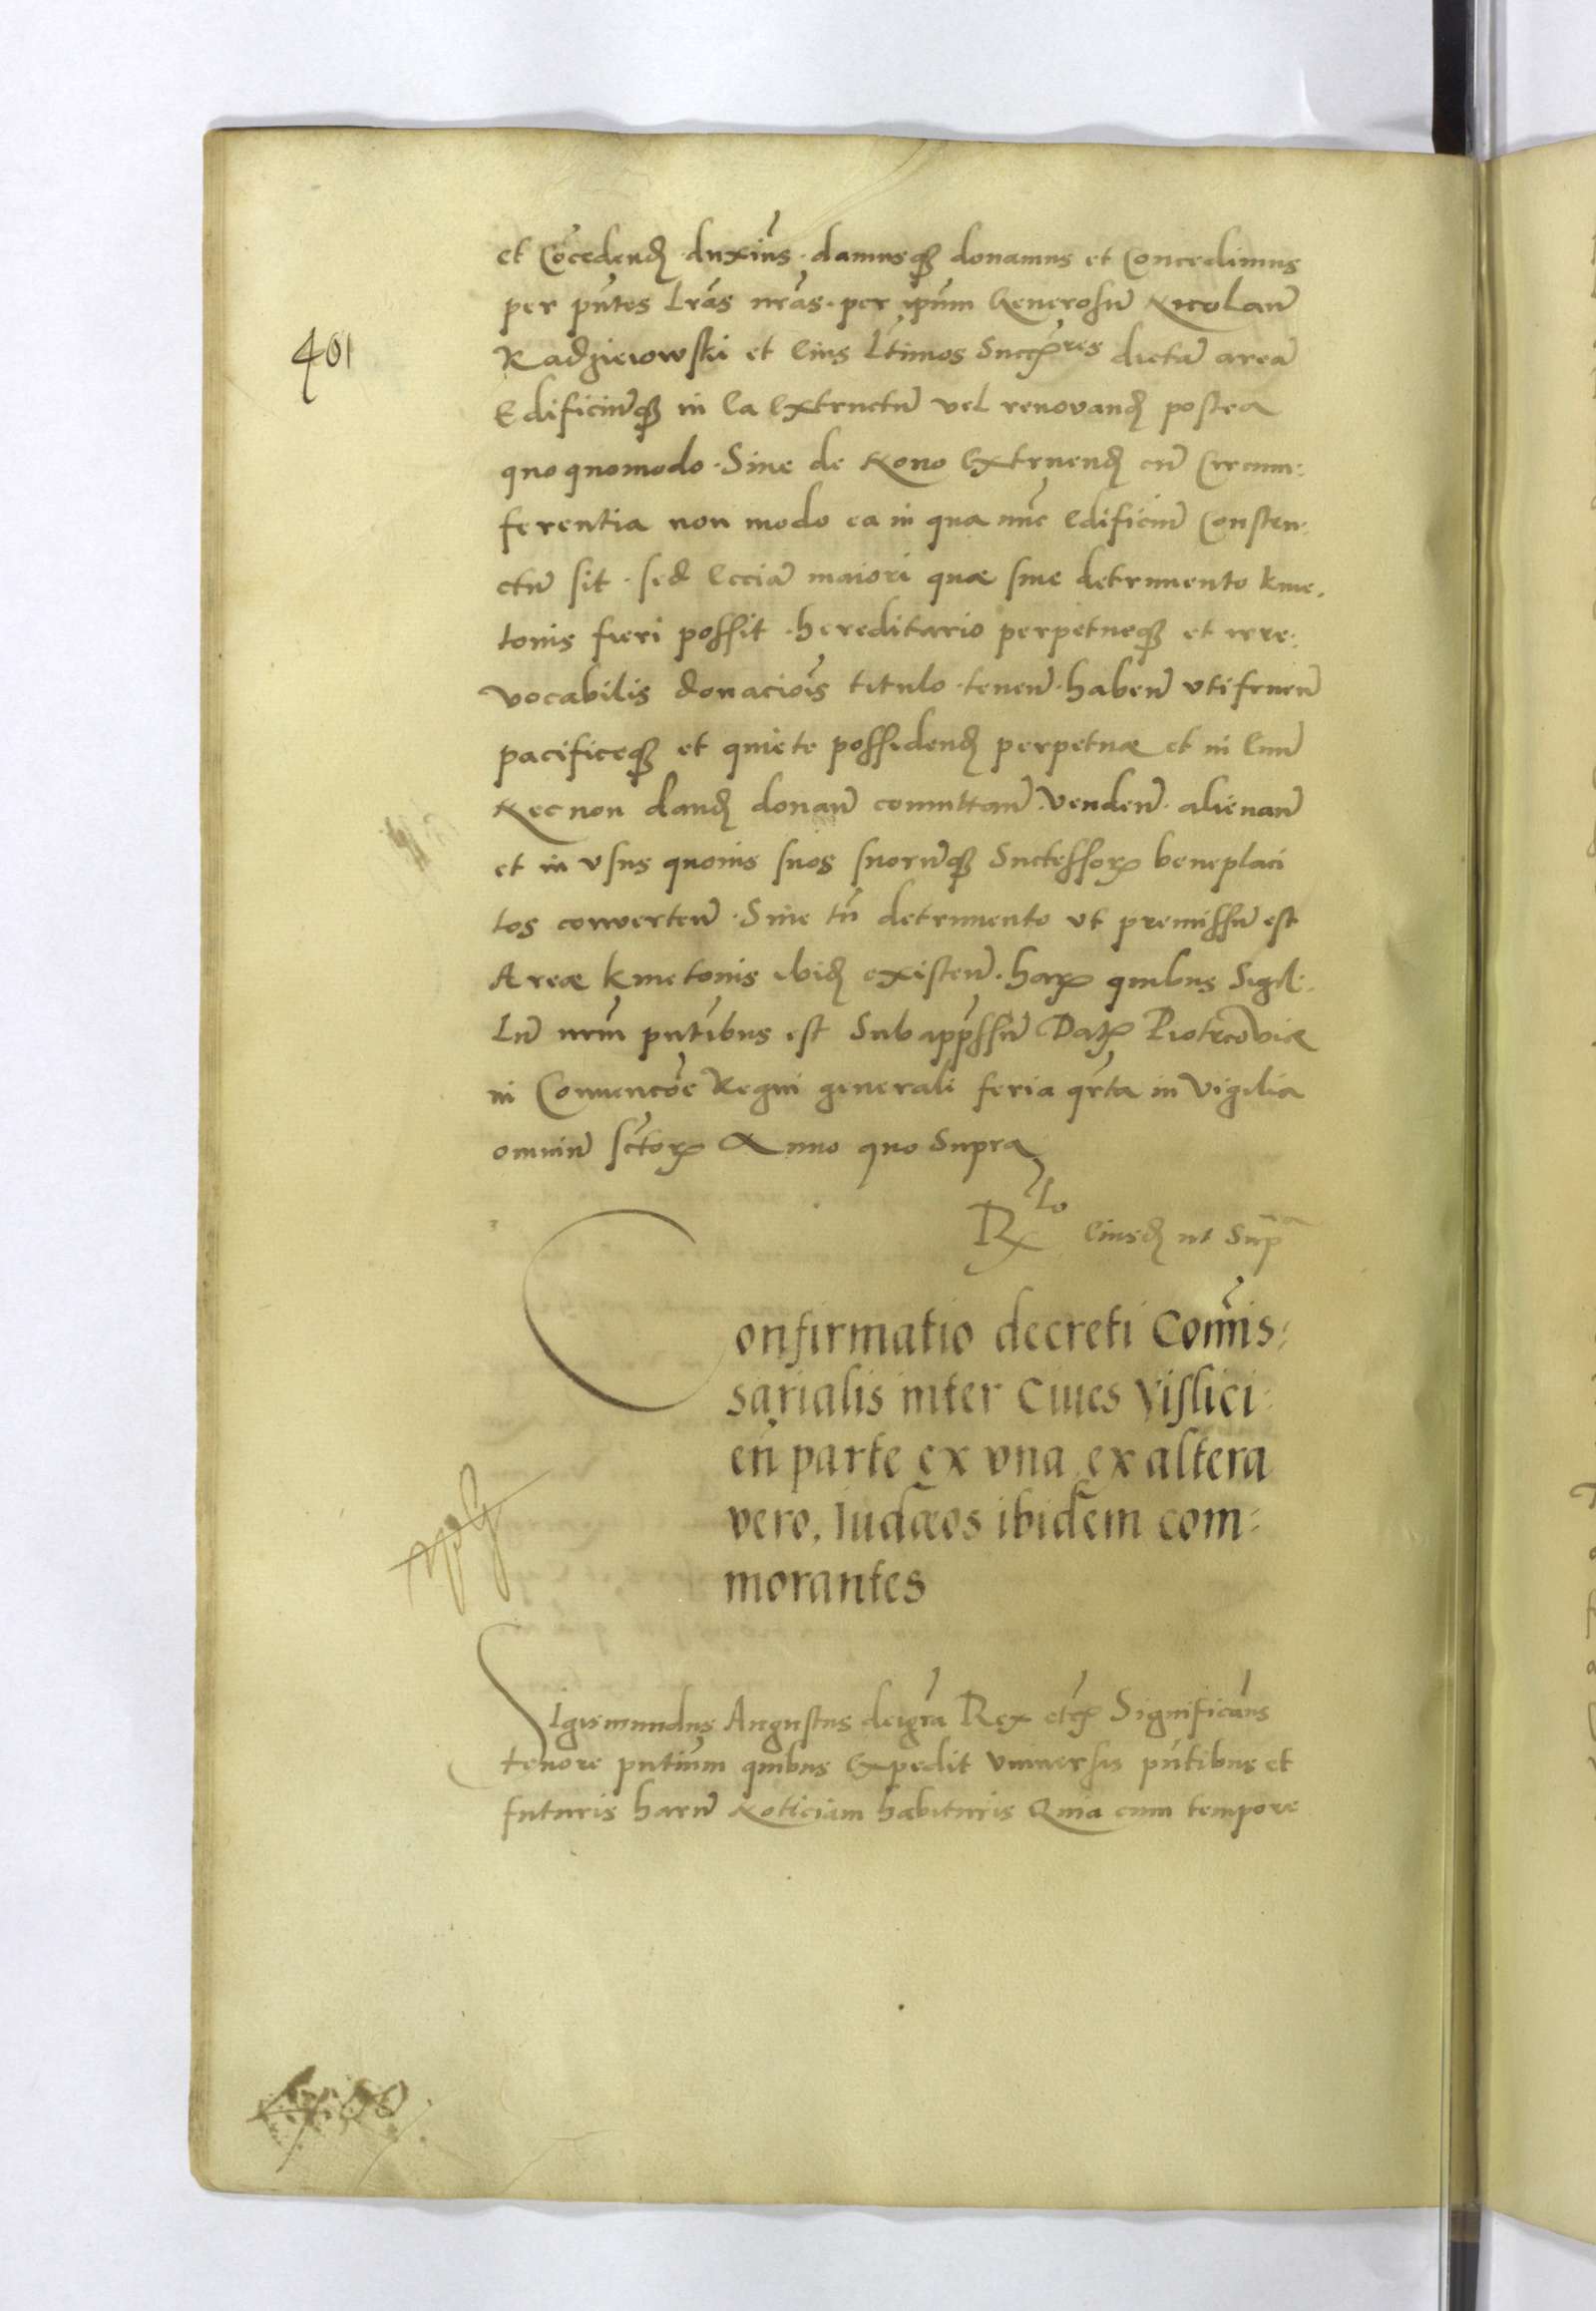 et Co͠cedenđ duxim͠s. damusqꝫ donamus et Concedimus
per pñtes Lr͠as nr͠as. per ip͠um Generosu͠ Nicolau͠
401
Radziewowski et Eius L͠timos Succ͠res dicta͠ area͠
Edificiu͠qꝫ in Ea Extructu͠ vel renovanđ postea
quoquomodo. Siue de Nouo Extruenđ cu͠ Circum:
ferentia non modo ea in qua nu͠c Edificiu͠ Constru:
ctu͠ sit. sed Eccia͠ maiori quæ sine detrimento kme.
tonis fieri possit. hereditario perpetueqꝫ et irre:
vocabilis donacio͠is titulo. tenen͠. haben͠ vtifruen͠
pacificeqꝫ et quiete possidenđ perpetuæ et in Euu͠
Necnon danđ donan͠ commttan͠. Venden͠. alienan͠
et in vsus quouis suos suoru͠qꝫ Successorꝝ beneplaci
tos conuerten͠. Sine tn͠ detrimento vt premissu͠ est
Areæ kmetonis ibiđ existen͠. harꝝ quibus Sigil:
Lu͠ nr͠m pn͠tibus est Sub app͠ssu͠ Datꝝ Piotrcoviæ
in Conuenco͠e Regni generali feria qr͠ta in Vigilia
omniu͠ sc͠torꝝ Anno quo Supra
Rlo Eiusđ ut Sup͠a
Confirmatio decreti Com͠is:
sarialis inter Ciues Vislici:
en͠ parte ex vna ex altera
vero, Iudæos ibidem com:
morantes
Sigismundus Augustus dei gr͠a Rex etcꝝ Significam͠s
tenore pn͠tium quibus Expedit Vniuersis pn͠tibus et
futuris haru͠ Noticiam habituris Quia cum tempore